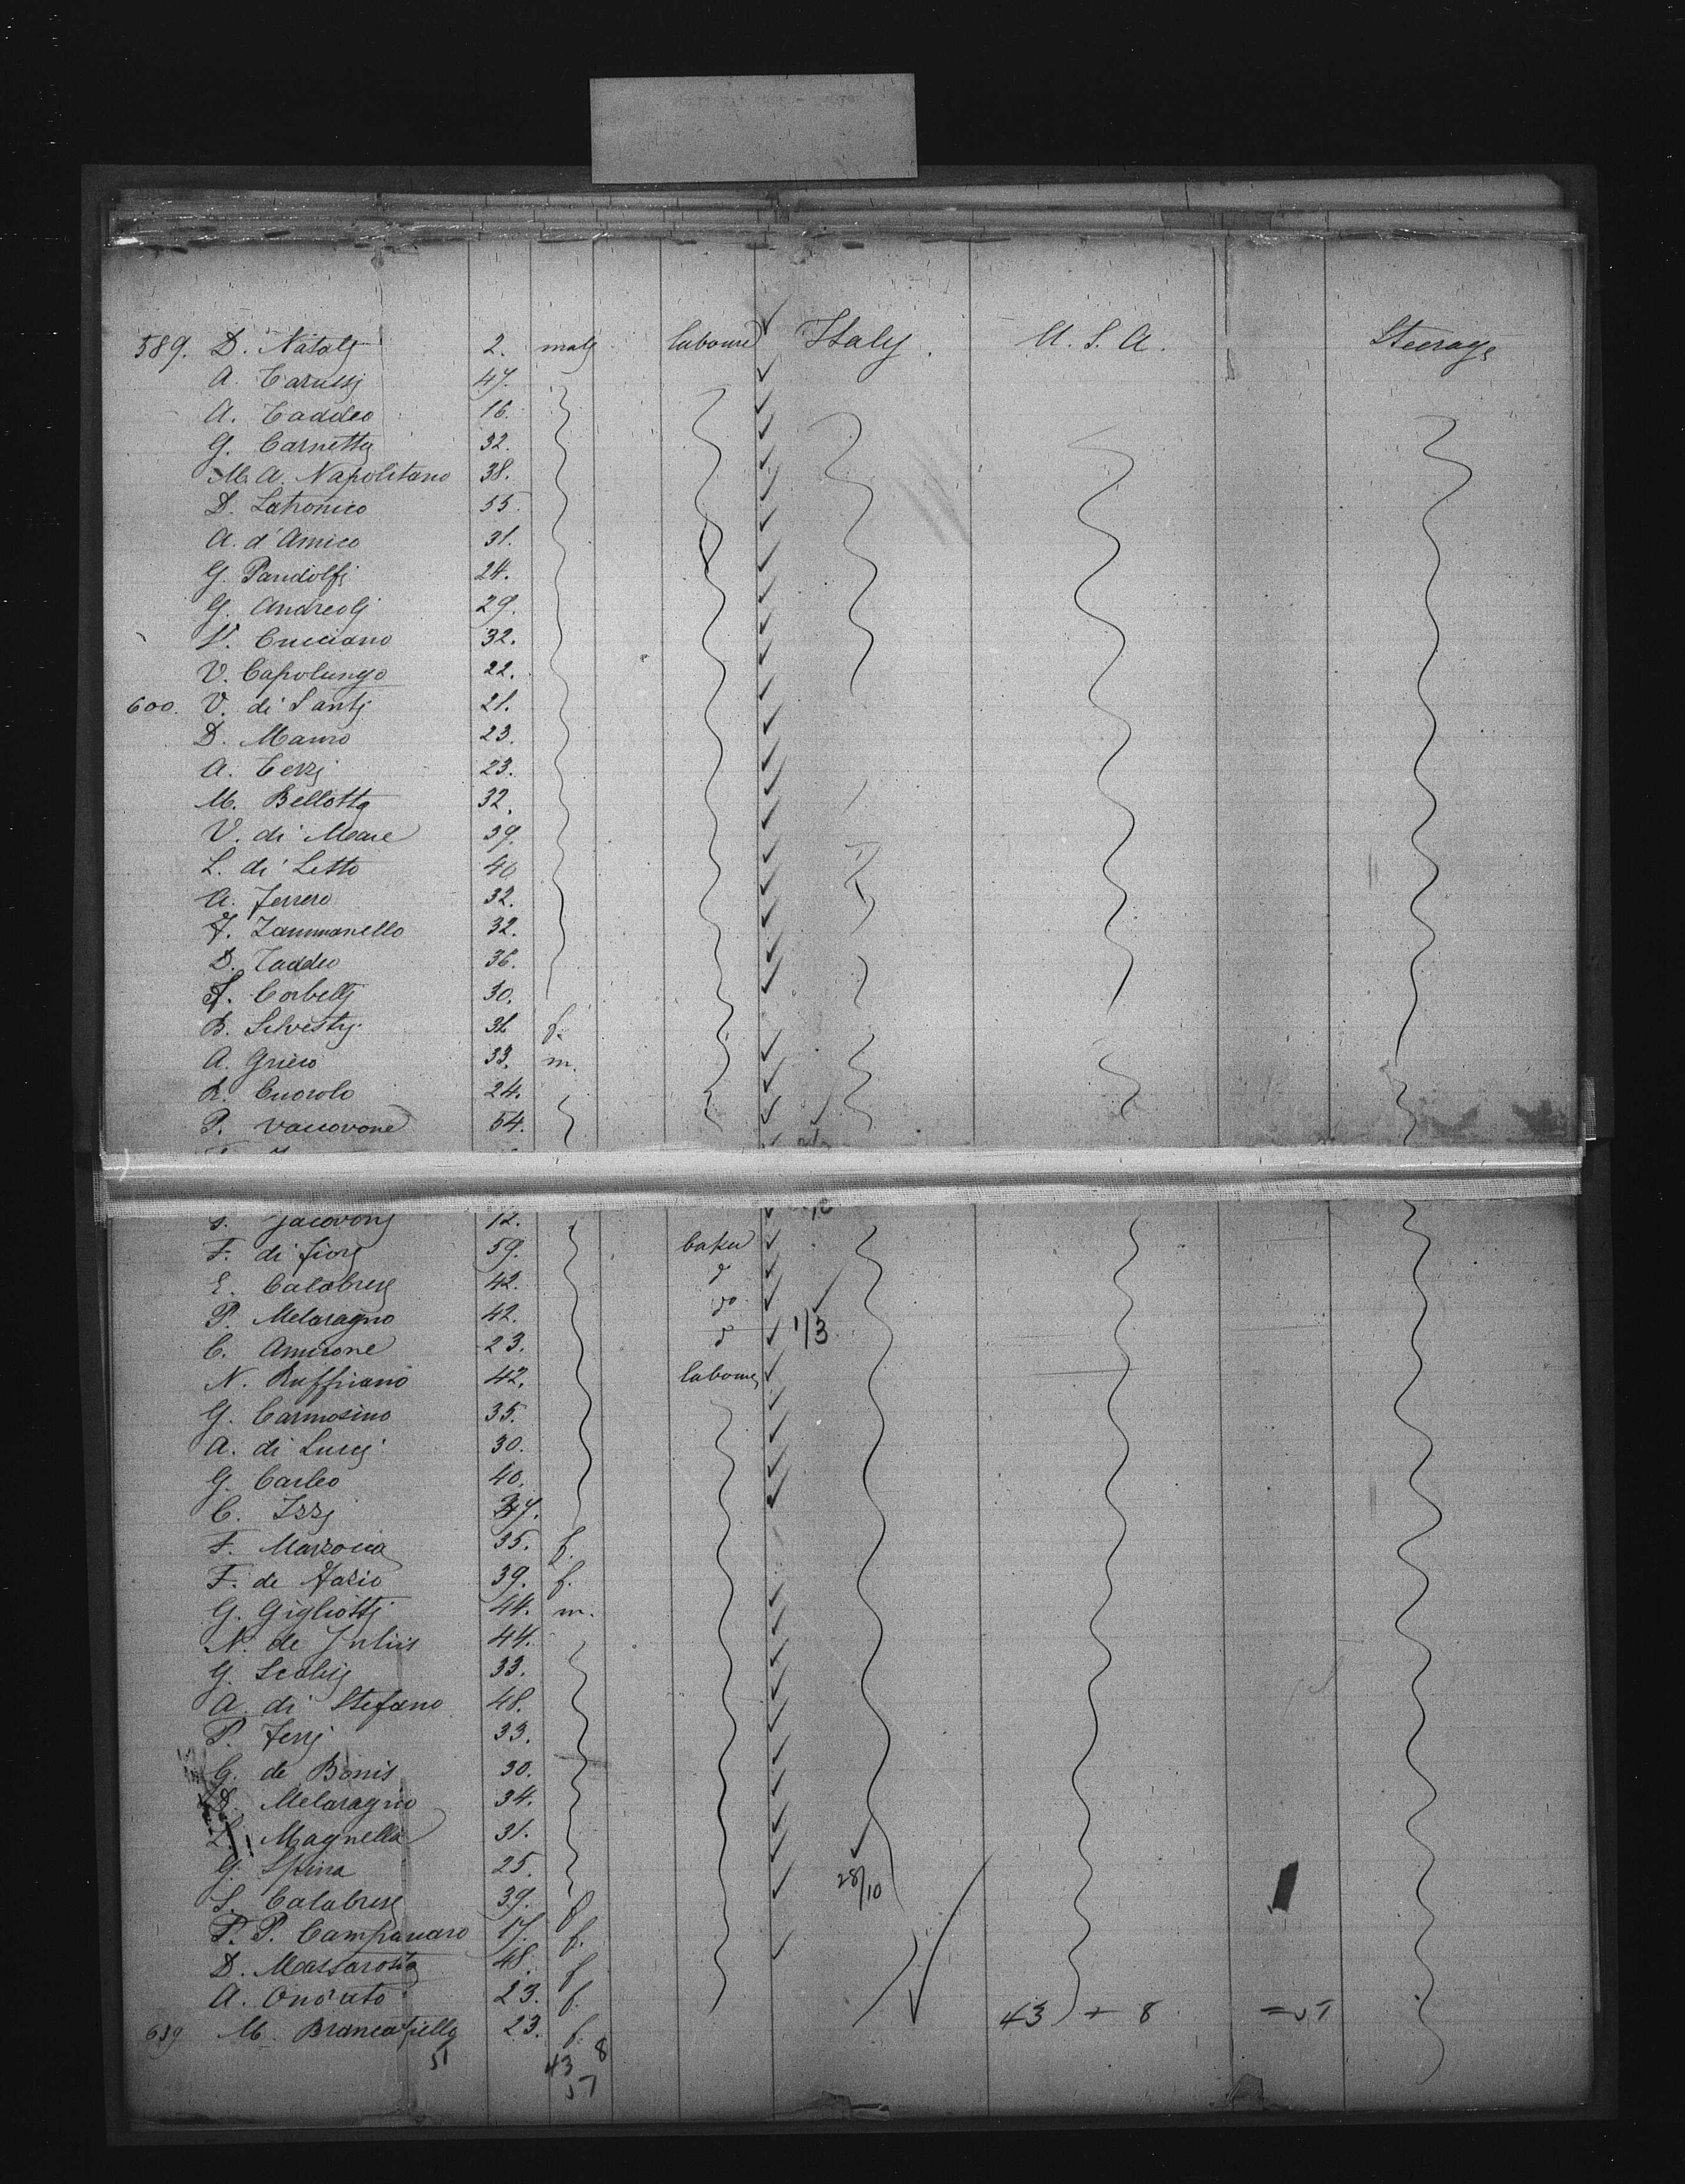 589. D. Natale 2. male laboure Italy. U. S. A. Steerage
A. Carussi 47.
A. Taddeo 16.
G. Carnetta 32.
M. A. Napolitano 38.
D. Latronico 55.
A. d'Amico 31.
G. Pandolfi 24.
G. Andreoli 29.
V. Cucciano 32.
V. Capolungo 22.
600. V. di Santi 21.
D. Mauro 23.
A. Terzi 23.
M. Bellotta 32.
V. di Mare 39.
L. di Letto 40
A. Ferrero 32.
F. Zammanello 32.
D. Taddeo 36.
F. Corbelli 30.
B. Silvestri 31 f.
A. Grieco 33. m.
R. Cuorolo 24.
P. Vacovone 54.
Jacovone 12.
F. di Fiore 59. baker
E. Calabrese 42. do
P. Melaragno 42. do
C. Amicone 23. do 1/3
N. Ruffiano 42. laboure
G. Carmosino 35.
A. di Lucci 30.
G. Carleo 40.
C. Izzi 37.
F. Marzocca 35. f.
F. de Fazio 39. f.
G. Gigliotti 44. m.
N. de Julius 44.
G. Scalisi 33.
A. di Stefano 48.
P. Ferri 33.
G. de Bonis 30.
D. Melaragno 34.
L. Magnella 31.
G. Spina 25. 28/10
S. Calabrese 39. f
P. P. Campanaro 17. f.
D. Massarotta 48. f
A. Onorato 23. f.
43 + 8 = 51
639 M. Brancatiella 23. f.
51 43 8
51